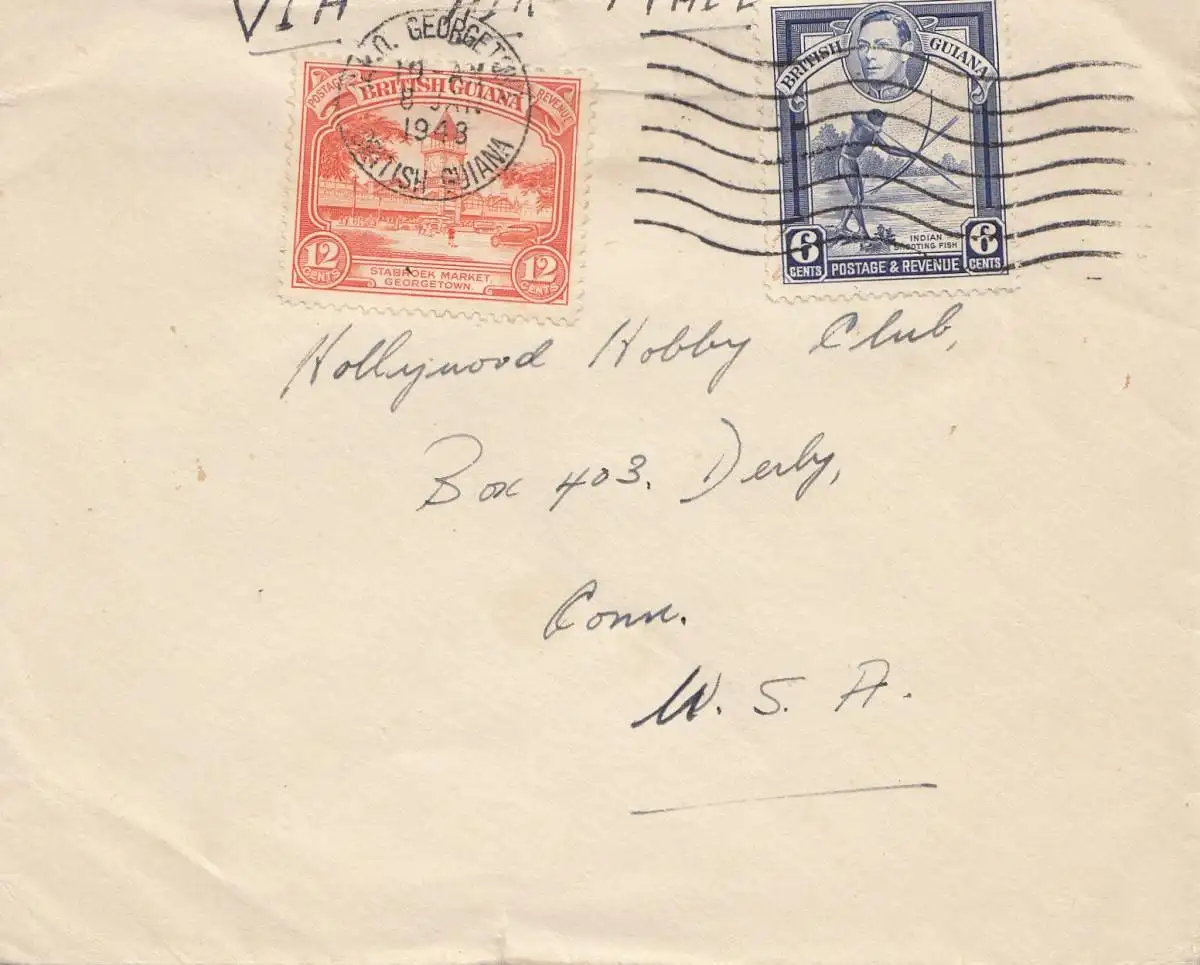 VIA AIR MAIL
G.P.O. GEORGETOWN
10 AM
8 JAN
1948
BRITISH GUIANA
POSTAGE BRITISH GUIANA REVENUE
12 CENTS
STABROEK MARKET
GEORGETOWN.
12 CENTS
BRITISH GUIANA
INDIAN
SHOOTING FISH
6 CENTS POSTAGE & REVENUE 6 CENTS
Hollywood Hobby Club,
Box 403. Derby,
Conn.
U. S. A.